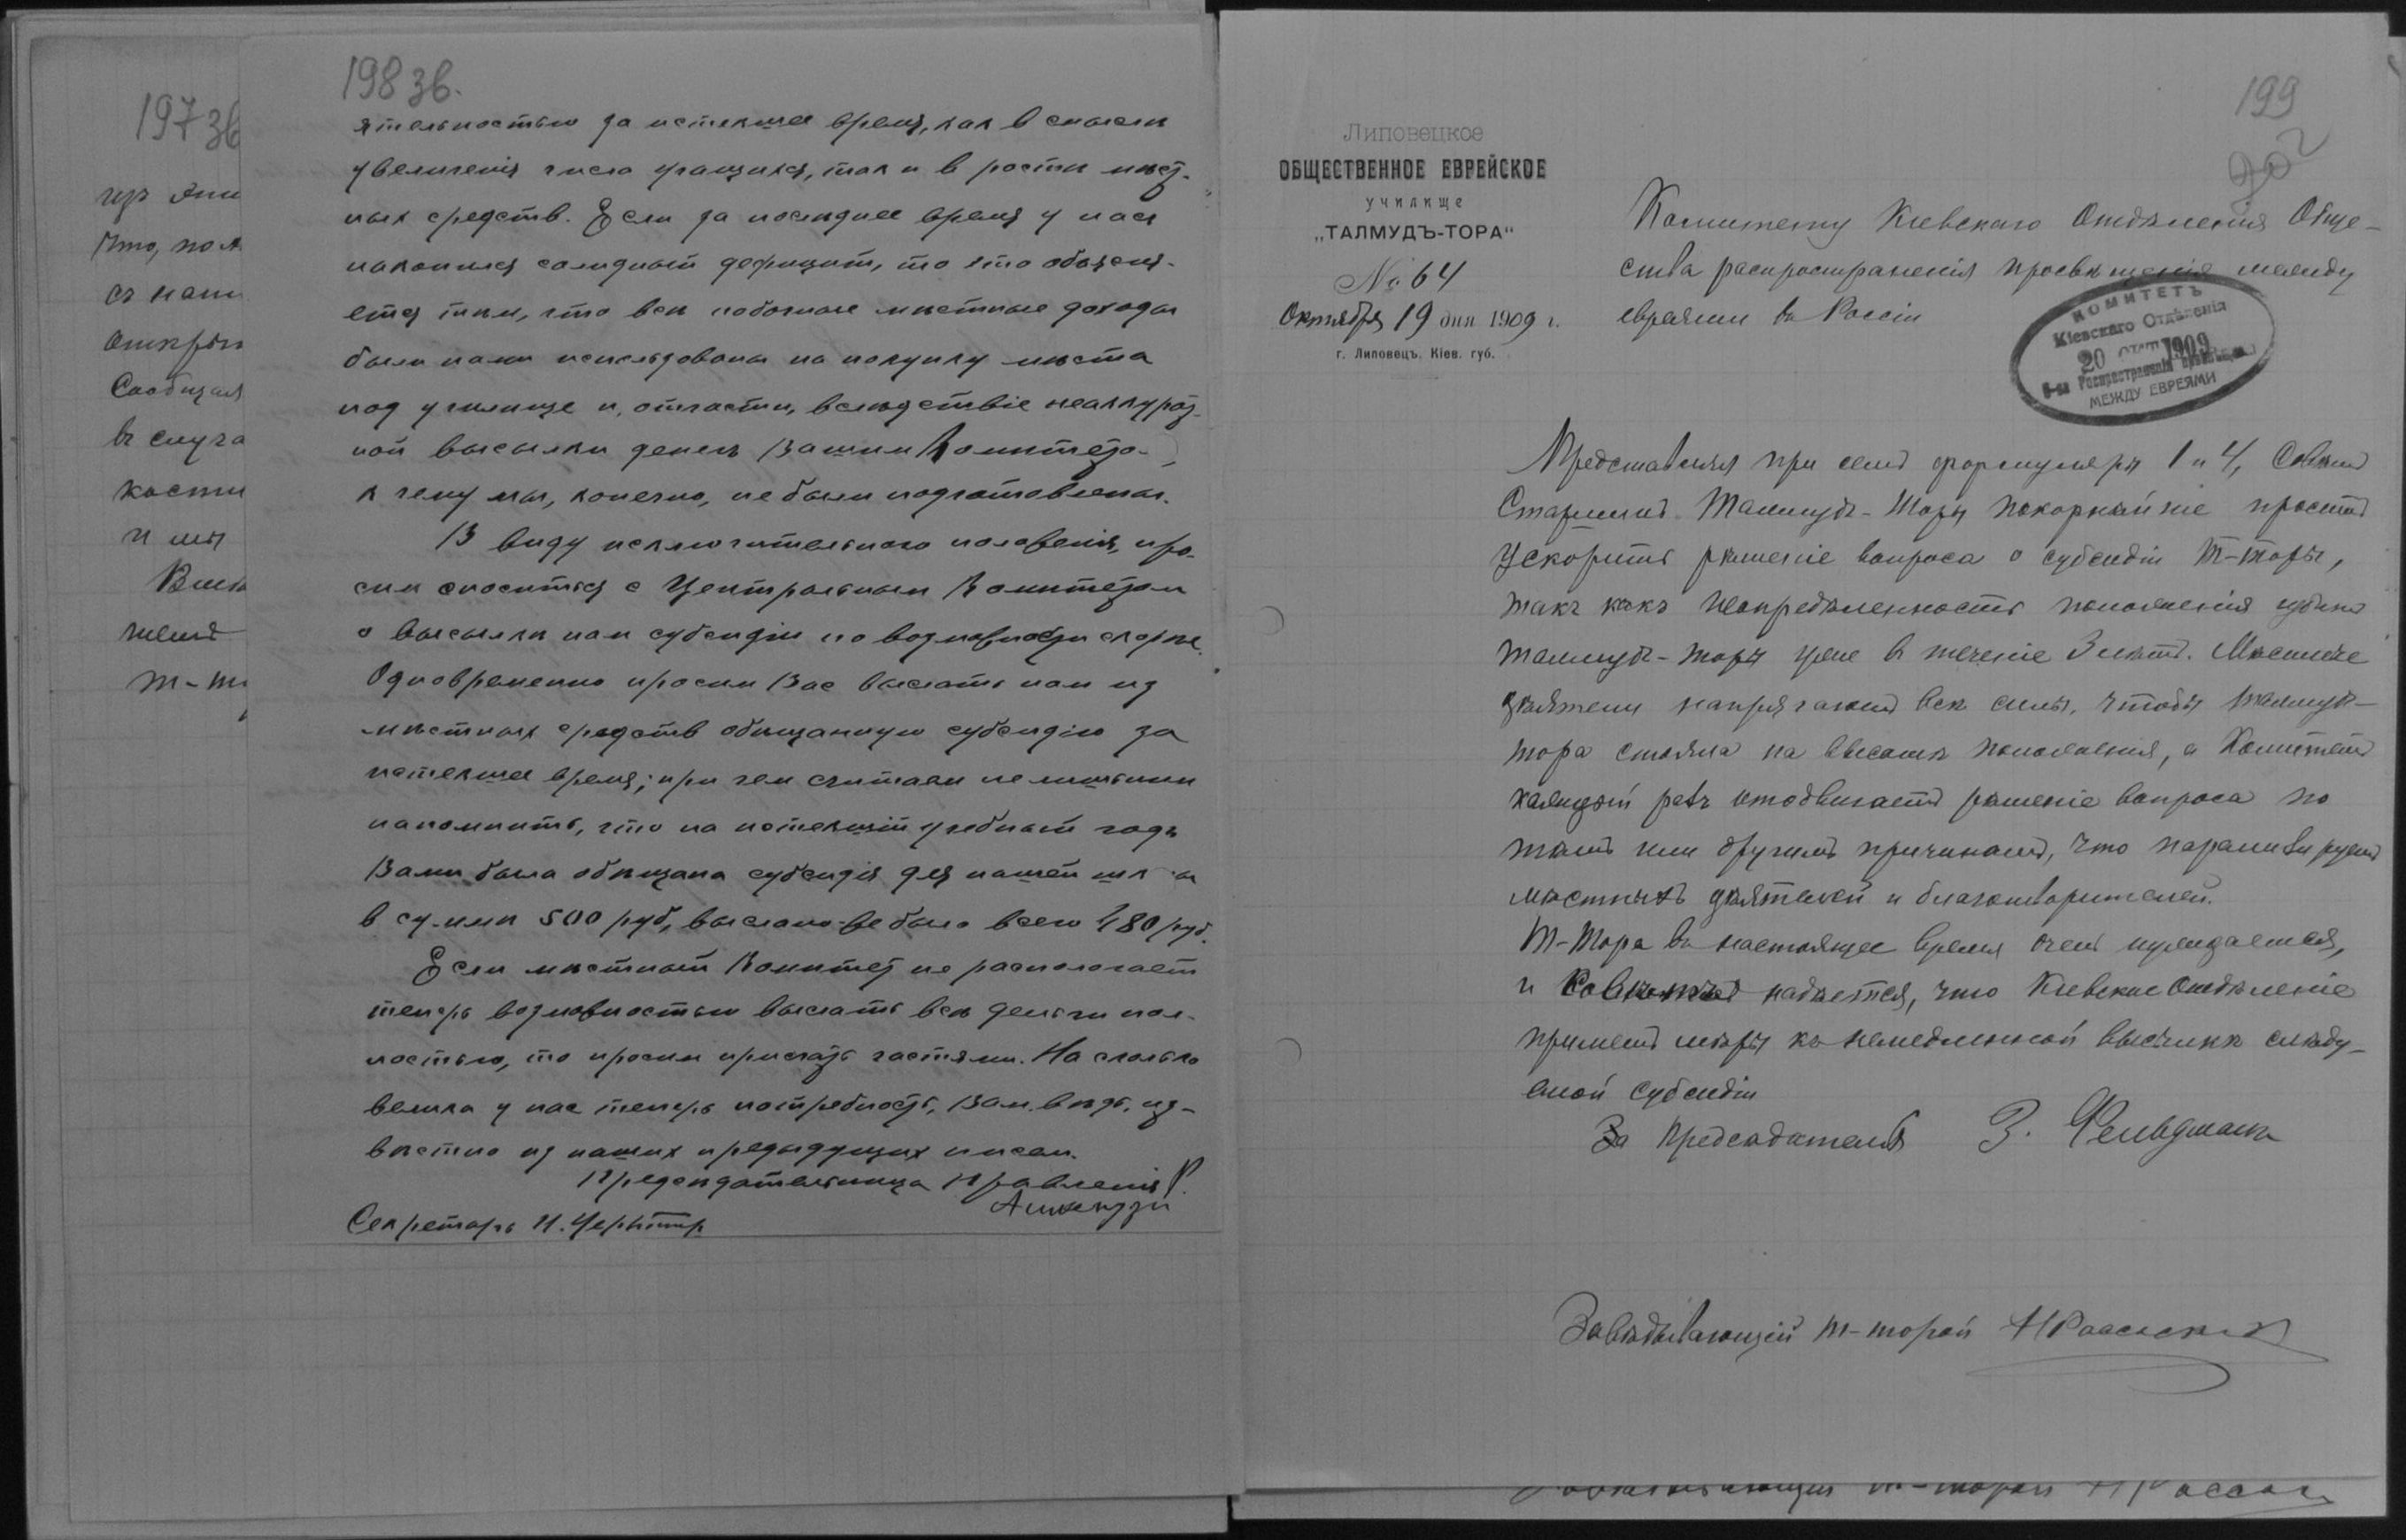 197 зв
изъ
Что, по
съ наши
открыт
Сообщая
въ случа
кости
и мы
198 зв.
ятельностью за истекшее время, как в смысле
увеличенія числа учащихся, так и в рости мѣст-
ных средств. Если за последнее время у нас
накопился солидный дефицит, то это объясня-
ется тем, что всѣ побочные мѣстные доходы
были нами использованы на покупку мѣста
под училище и, отчасти, вслѣдствіе неаккурат-
ной высылки денег Вашим Комитето-
к чему мы, конечно, не были подготовлены.
В виду исключительного положенія, про-
сим снестись с Центральным Комитетом
о высылкѣ нам субсидіи по возможности скорѣе.
Одновременно просим Вас выслать нам из
мѣстных средств обѣщанную субсидію за
истекшее время; при чем считаем не лишним
напомнить, что на истекшій учебный годъ
Вами была обѣщана субсидія для нашей шк ы
в сумме 500 руб, выслано-же было всего 480 руб.
Если мѣстный Комитет не располагает
теперь возможностью выслать всѣ деньги пол-
ностью, то просим прислать частями. На сколько
велика у нас теперь потребность, Вам, вѣдь, из-
вѣстно из наших предыдущих писем.
Предсѣдательница Правленія Р.
Секретарь И.
199
202
Липовецкое
ОБЩЕСТВЕННОЕ ЕВРЕЙСКОЕ
училище
„ТАЛМУДЪ-ТОРА“
№ 64
Октября 19 дня 1909 г.
г. Липовецъ, Кіев. губ.
Комитету Кіевскаго Отдѣленія Обще-
ства распространенія просвѣщенія между
евреями въ Россіи
КОМИТЕТЪ
Кіевскаго Отдѣленія
20 ОКТ 1909
О-ва Распространенія Просвѣщенія
МЕЖДУ ЕВРЕЯМИ
Представляя при семъ формуляры 1 и 4, Совѣтъ
Старшинъ Талмудъ-Торы покорнѣйше проситъ
Ускорить рѣшеніе вопроса о субсидіи Т-торы,
такъ какъ неопредѣленность положенія
талмудъ-торы уже въ теченіе 3 лѣтъ. Мѣстные
дѣятели напрягаютъ всѣ силы, чтобы талмудъ-
тора стояла на высотѣ положенія, а Комитетъ
каждый разъ отодвигаетъ рѣшеніе вопроса по
тѣмъ или другимъ причинамъ, что
мѣстныхъ дѣятелей и благотворителей.
Т-Тора въ настоящее время очень нуждается,
и Совѣтъ надѣется, что Кіевское Отдѣленіе
приметъ мѣры къ немедленной высылкѣ слѣду-
емой субсидіи
За Предсѣдателя З. Фельдманъ
Завѣдывающій т-торой